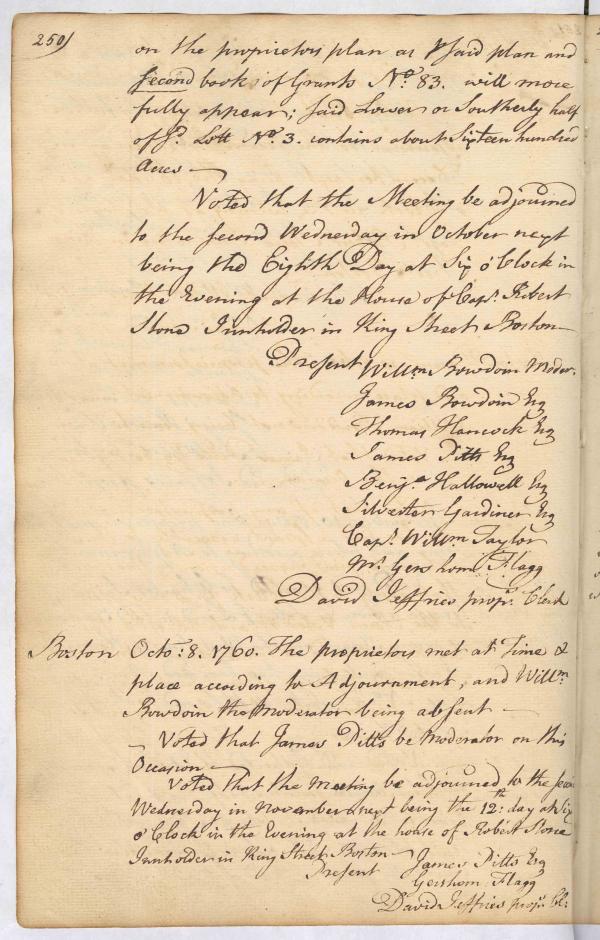 250)
on the proprietors plan as p said plan and
second book of Grants No. 83. will more
fully appear; said Lower or Southerly half
of sd. Lott No. 3. contains about Sixteen hundred
Acres —
Voted that the Meeting be adjourned
to the second Wednesday in October next
being the Eighth Day at Six o'Clock in
the Evening at the House of Capt. Robert
Stone Innholder in King Street Boston —
Present Willm Bowdoin Moder.
James Bowdoin Esq
Thomas Hancock Esq
James Pitts Esq
Benja. Hallowell Esq
Silvester Gardiner Esq
Capt. Willm Taylor
Mr. Gershom Flagg
David Jeffries propr. Clerk
Boston Octo: 8. 1760. The proprietors met at Time &
place according to Adjournment, and Willm
Bowdoin the Moderator being absent —
— Voted that James Pitts be Moderator on this
Occasion —
Voted that the Meeting be adjourned to the
Wednesday in November next being the 12th: day at Six
o'Clock in the Evening at the house of Robert Stone
Innholder in King Street Boston —
Present James Pitts Esq
Gershom Flagg
David Jeffries propr. Cl: